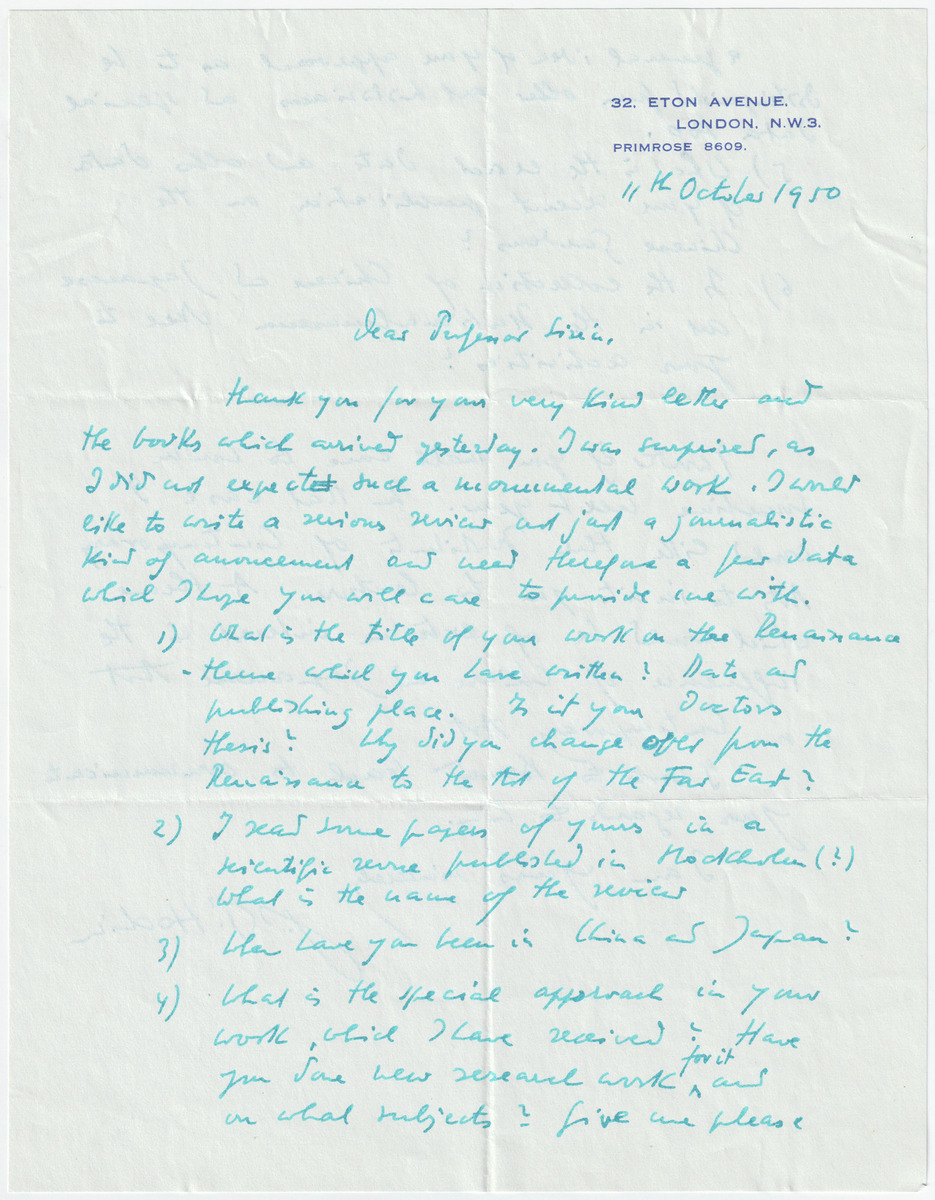 32, ETON AVENUE,
LONDON, N.W.3.
PRIMROSE 8609.
11th October 1950
Dear Professor Sirén,
Thank you for your very kind letter and
the books which arrived yesterday. I was surprised, as
I did not expect such a monumental work. I would
like to write a serious review not just a journalistic
kind of anouncement and need therefore a few data
which I hope you will care to provide me with.
1) What is the title of your work on the Renaissance
- theme which you have written? Date and
publishing place. Is it your Doctors
thesis? Why did you change over from the
Renaissance to the Art of the Far East?
2) I read some papers of yours in a
scientific revue published in Stockholm (?)
What is the name of the review
3) When have you been in China and Japan?
4) What is the special approach in your
work, which I have received? Have
you done new research work for it and
on what subjects? Give me please